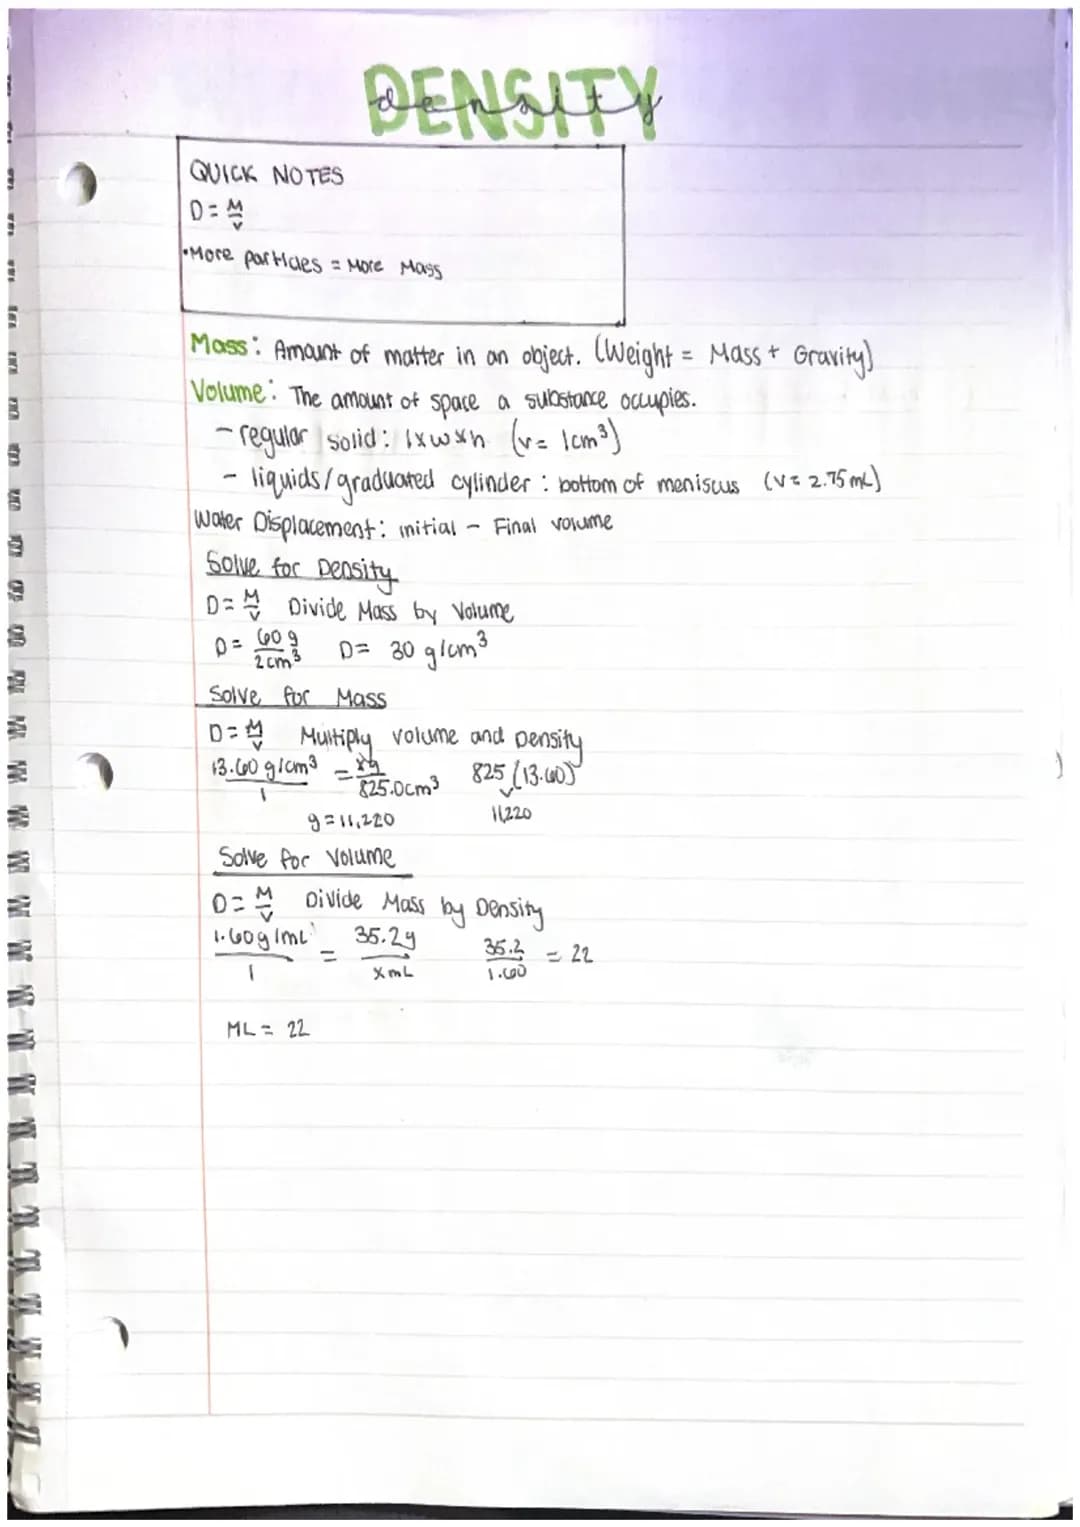 DENSITY
density
QUICK NOTES
D = M/V
•More particles = More Mass
Mass: Amount of matter in an object. (Weight = Mass + Gravity)
Volume: The amount of space a substance occupies.
- regular solid: l x w x h (v = 1cm³)
- liquids/graduated cylinder : bottom of meniscus (v = 2.75 mL)
Water Displacement: initial - Final volume
Solve for Density
D = M/V Divide Mass by Volume
D = 60 g/2 cm³ D = 30 g/cm³
Solve for Mass
D = M/V Multiply volume and Density
13.60 g/cm³/1 = xg/825.0cm³ 825 (13.60)
g = 11,220 11,220
Solve for Volume
D = M/V Divide Mass by Density
1.60g/mL/1 = 35.2g/x mL 35.2/1.60 = 22
ML = 22